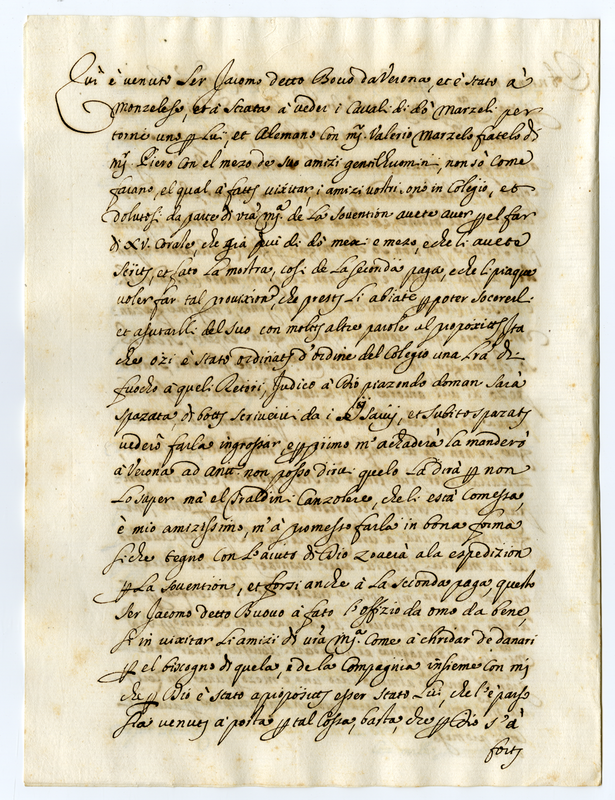 Qui è venuto Ser Jacomo detto Bovo da Verona, et è stato à
Monzelese, et à Strata à veder i Cavali di dō Marzeli per
torne uno lui, et Alemano con mr. Valerio Marzelo fratelo di
mr. Piero con el mezo de suo amizi gentilhuomini, non sò come
farano, el qual à fatto visitar i amizi vostri sono in Colegio, et
da parte di vrā mā. de La Sovention avete aver el far
di XV. Corate, che già di dō mexi e mezo, e che li avete
et fato La mostra, cosi de La seconda paga, e che li piaqua
voler far tal provixion, che presto Li abiate poter Socoreli
et ajutarli del suo con molte altre parole al proposito sta
che ozi è stato ordinato d'ordine del Colegio una Lrā di
fuocho à queli Retori, Judico à Dio piazendo doman sarà
spazata, di da i Savij, et subito spazato
vederò farla ingrossar, e primo m'achaderà la manderò
à Verona ad non posso dirvi quelo La dirà non
Lo saper mà el Canzolero, che li està Comessa,
è mio amizissimo, m'à promesso farla in bona forma
siche tegno con L'aiuto di Dio zoverà a la espedizion
La Sovention, et forsi anche à La Seconda paga, questo
Ser Jacomo detto Buovo à fato l'offizio da omo da bene,
sì in visitar Li amizi di vrā mā. Come à chridar de danari
el bisogno di quela, e de la Compagnia insieme con mi
che Dio è stato à proposito esser stato Lui, che l'è parso
sia venuto à posta tal Cossa, basta, che Dio s'à
forti